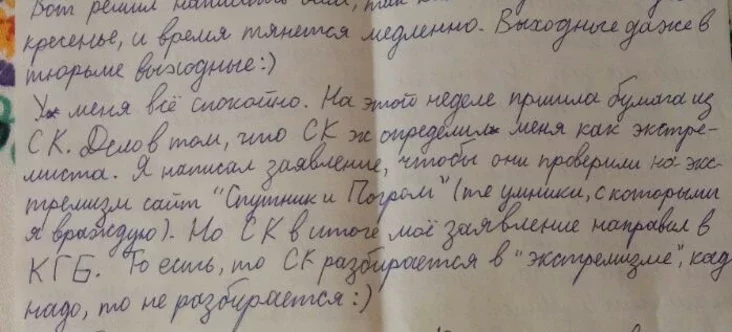 Вот решил написать вам, так
кресенье, и время тянется медленно. Выходные даже в
тюрьме выходные:)
У меня всё спокойно. На этой неделе пришла бумага из
СК. Дело в том, что СК ж определил меня как экстре-
миста. Я написал заявление, чтобы они проверили на экс-
тремизм сайт "Спутник и Погром" (те умники, с которыми
я враждую). Но СК в итоге моё заявление направил в
КГБ. То есть, то СК разбирается в "экстремизме", кад
надо, то не разбирается:)